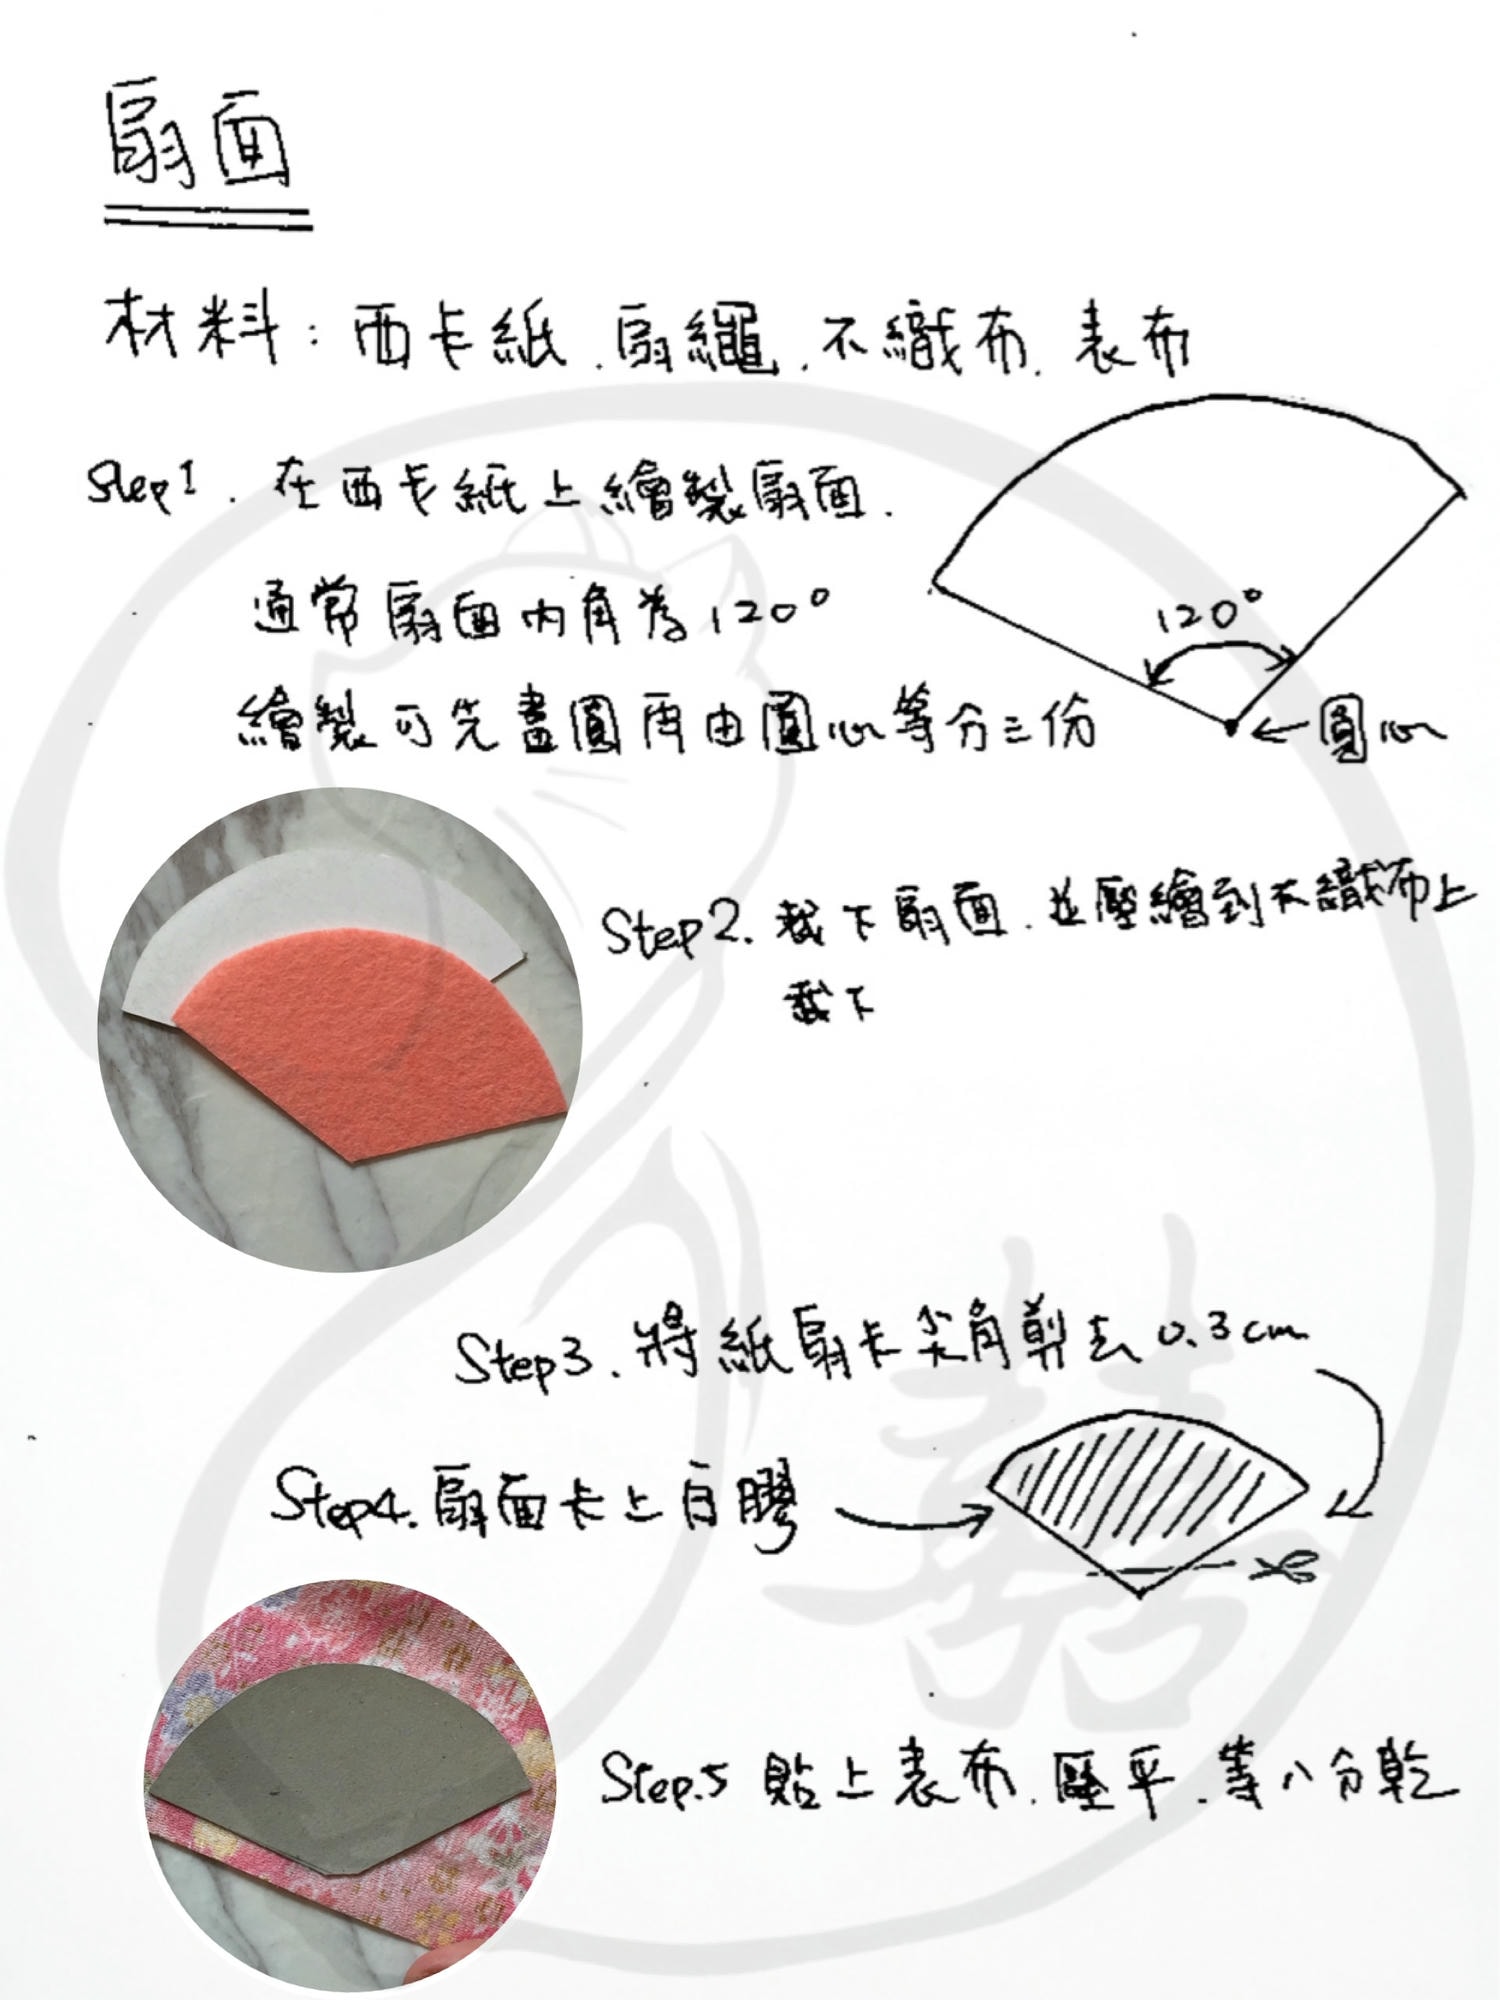 扇面
材料：西卡紙．扇繩．不織布．表布
Step1．在西卡紙上繪製扇面．
通常扇面內角為120°
繪製可先畫圓再由圓心等分三份
120°
圓心
Step2．裁下扇面．並壓繪到不織布上
裁下
Step3．將紙扇卡尖角剪去0.3cm
Step4．扇面卡上白膠
Step.5 貼上表布．壓平．等八分乾
囍